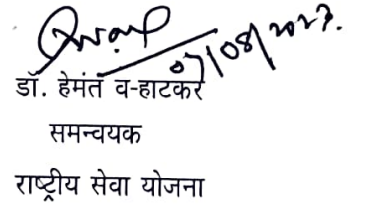 07/08/2023.
डॉ. हेमंत व-हाटकर
समन्वयक
राष्ट्रीय सेवा योजना